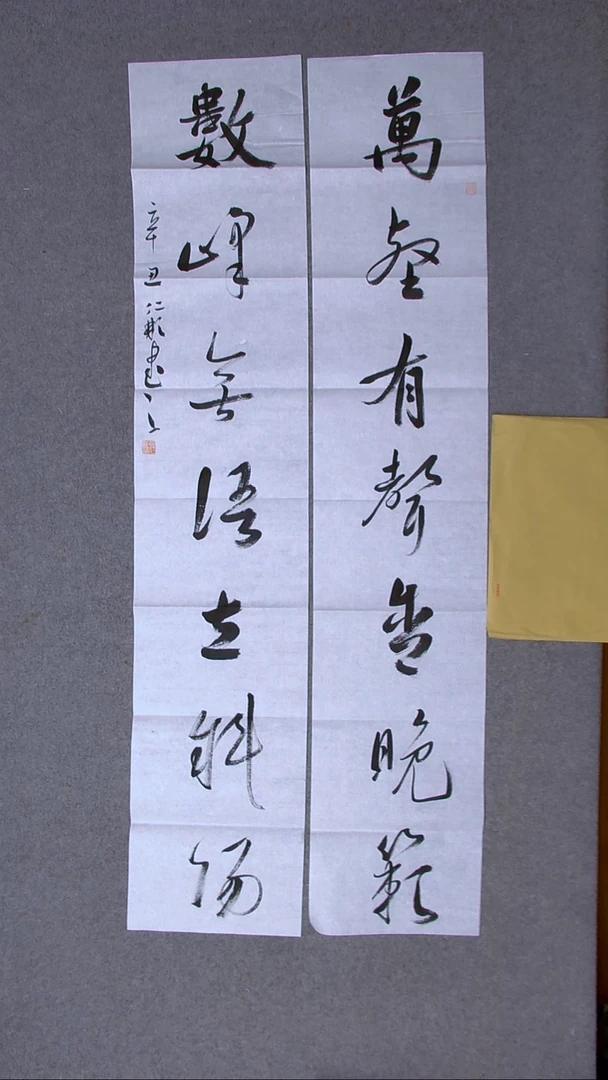 萬壑有聲含晚籟
數峰無語立斜陽
辛丑仁彬書